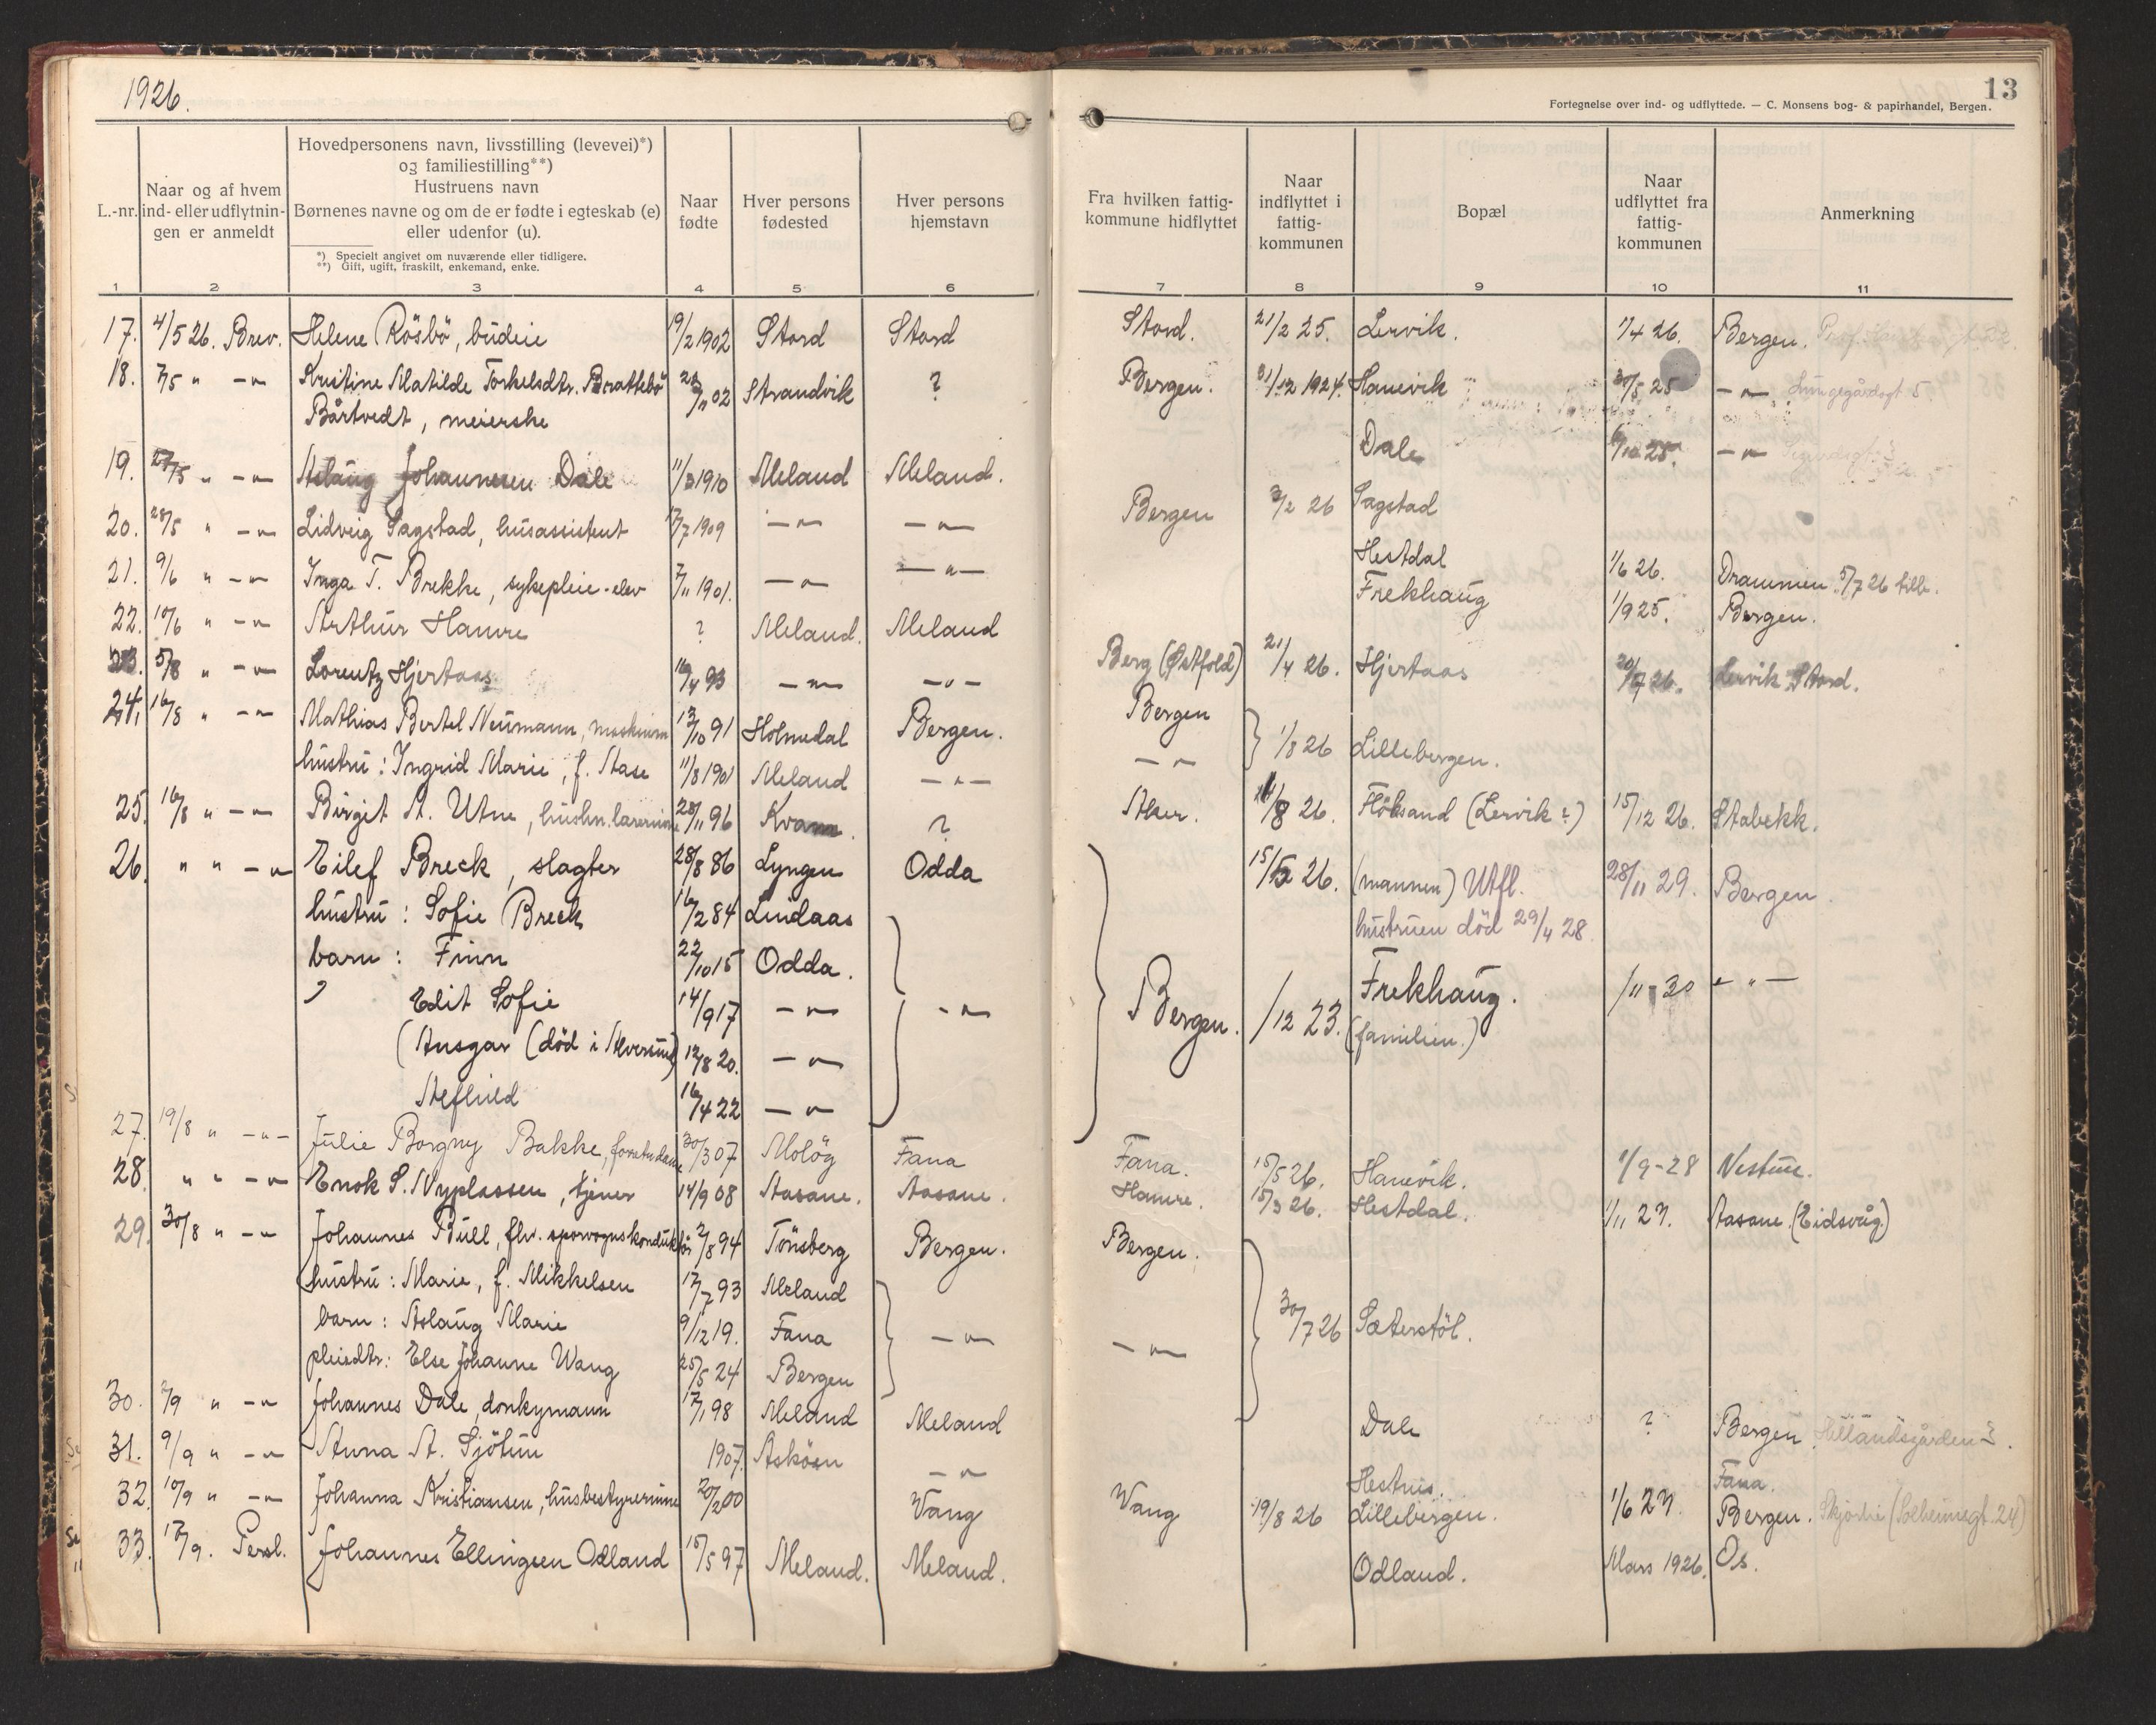 1926.
13
Fortegnelse over ind- og udflyttede. — C. Monsens bog- & papirhandel, Bergen.
L.-nr.
Naar og af hvem ind- eller udflytnin-gen er anmeldt
Hovedpersonens navn, livsstilling (levevei)*)
og familiestilling**)
Hustruens navn
Børnenes navne og om de er fødte i egteskab (e)
eller udenfor (u).
*) Specielt angivet om nuværende eller tidligere.
**) Gift, ugift, fraskilt, enkemand, enke.
Naar fødte
Hver persons fødested
Hver persons hjemstavn
Fra hvilken fattig-kommune hidflyttet
Naar indflyttet i fattig-kommunen
Bopæl
Naar udflyttet fra fattig-kommunen
Anmerkning
1 2 3 4 5 6 7 8 9 10 11
17. 4/5 26. Brev. Helene Rösbö, budeie 19/2 1902 Stord Stord Stord. 21/2 25. Lervik. 1/4 26. Bergen.
18. 7/5 " — " — Kristine Matilde Torkelsdtr. Brattebö 02 Strandvik ? Bergen. 31/12 1924. Hanevik 30/5 25 — " — Lungegårdsgt 5.
Bårtvedt, meierske
Dale 25. — " —
19. 27/5 " — " — Aslaug Johannesen Dale 11/3 1910 Meland Meland.
20. 28/5 " — " — Lidveig Sagstad, husassistent 17/7 1909 — " — — " — Bergen 3/2 26 Sagstad
21. 9/6 " — " — Inga T. Brekke, sykepleie-elev 7/11 1901. — " — — " — Hestdal 1/6 26. Drammen 5/7 26 tilb.
22. 10/6 " — " — Arthur Hamre ? Meland. Meland Frekhaug 1/9 25. Bergen.
23. 5/8 " — " — Lorentz Hjertaas 16/4 93 — " — — " — Berg (Østfold) 21/4 26. Hjertaas 20/7 26. Lervik Stord.
24. 16/8 " — " — Mathias Bertel Neumann, maskinm 13/10 91 Holmedal Bergen. Bergen
hustru: Ingrid Marie, f. Aase 11/8 1901 Meland — " — — " — 1/8 26 Lillebergen.
25. 16/8 " — " — Birgit A. Utne, hushn.lærerinne 28/11 96 Kvam. ? Aker. 26. Flöksand (Lervik?) 15/12 26. Stabekk.
26. " " — " — Eilef Breck, slagter 28/8 86 Lyngen Odda 26. (mannen) Utfl. 28/11 29. Bergen.
hustru: Sofie Breck 16/2 84 Lindaas hustruen död 29/4 28
barn: Finn 22/10 15 Odda.
Edit Sofie 14/9 17 — " — — " — Bergen. /12 23. Frekhaug. /11-30 — " —
(Ansgar (död i Alversund) 12/8 20. — " — (familien.)
Aeflild 16/4 22 — " —
27. 19/8 " — " — Julie Borgny Bakke, 30/3 07 Molög Fana Fana. 15/5 26. Hanevik. 1/9-28 Nestun.
28. " " — " — Enok S. Nyplassen, tjener 14/9 08 Aasane. Aasane. Hamre. 15/3 26. Hestdal. 1/11 27. Aasane. (Eidsvåg.)
29. 30/8 " — " — Johannes Bull, fhv. sporvognskonduktör 2/8 94 Tönsberg Bergen. Bergen.
hustru: Marie, f. Mikkelsen 17/7 93 Meland
barn: Aslaug Marie 9/12 19. Fana — " — — " — 30/7 26 Sæterstöl.
pleiedtr: Else Johanne Wang 25/5 24 Bergen
30. 2/9 " — " — Johannes Dale, donkymann 17/1 98 Meland Meland Dale ? Bergen.
31. 9/9 " — " — Anna A. Sjötun 1907. Asköen — " — Hestnes. Fana.
32. 10/9 " — " — Johanna Kristiansen, husbestyrerinne 20/2 00 Wang Wang 19/8 26 Lillebergen. 1/6 27. Bergen. (Solheimsgt. 24)
33. 17/9. Persl. Johannes Ellingsen Odland 15/5 97 Meland. Meland. Odland. Mars 1926. Os.